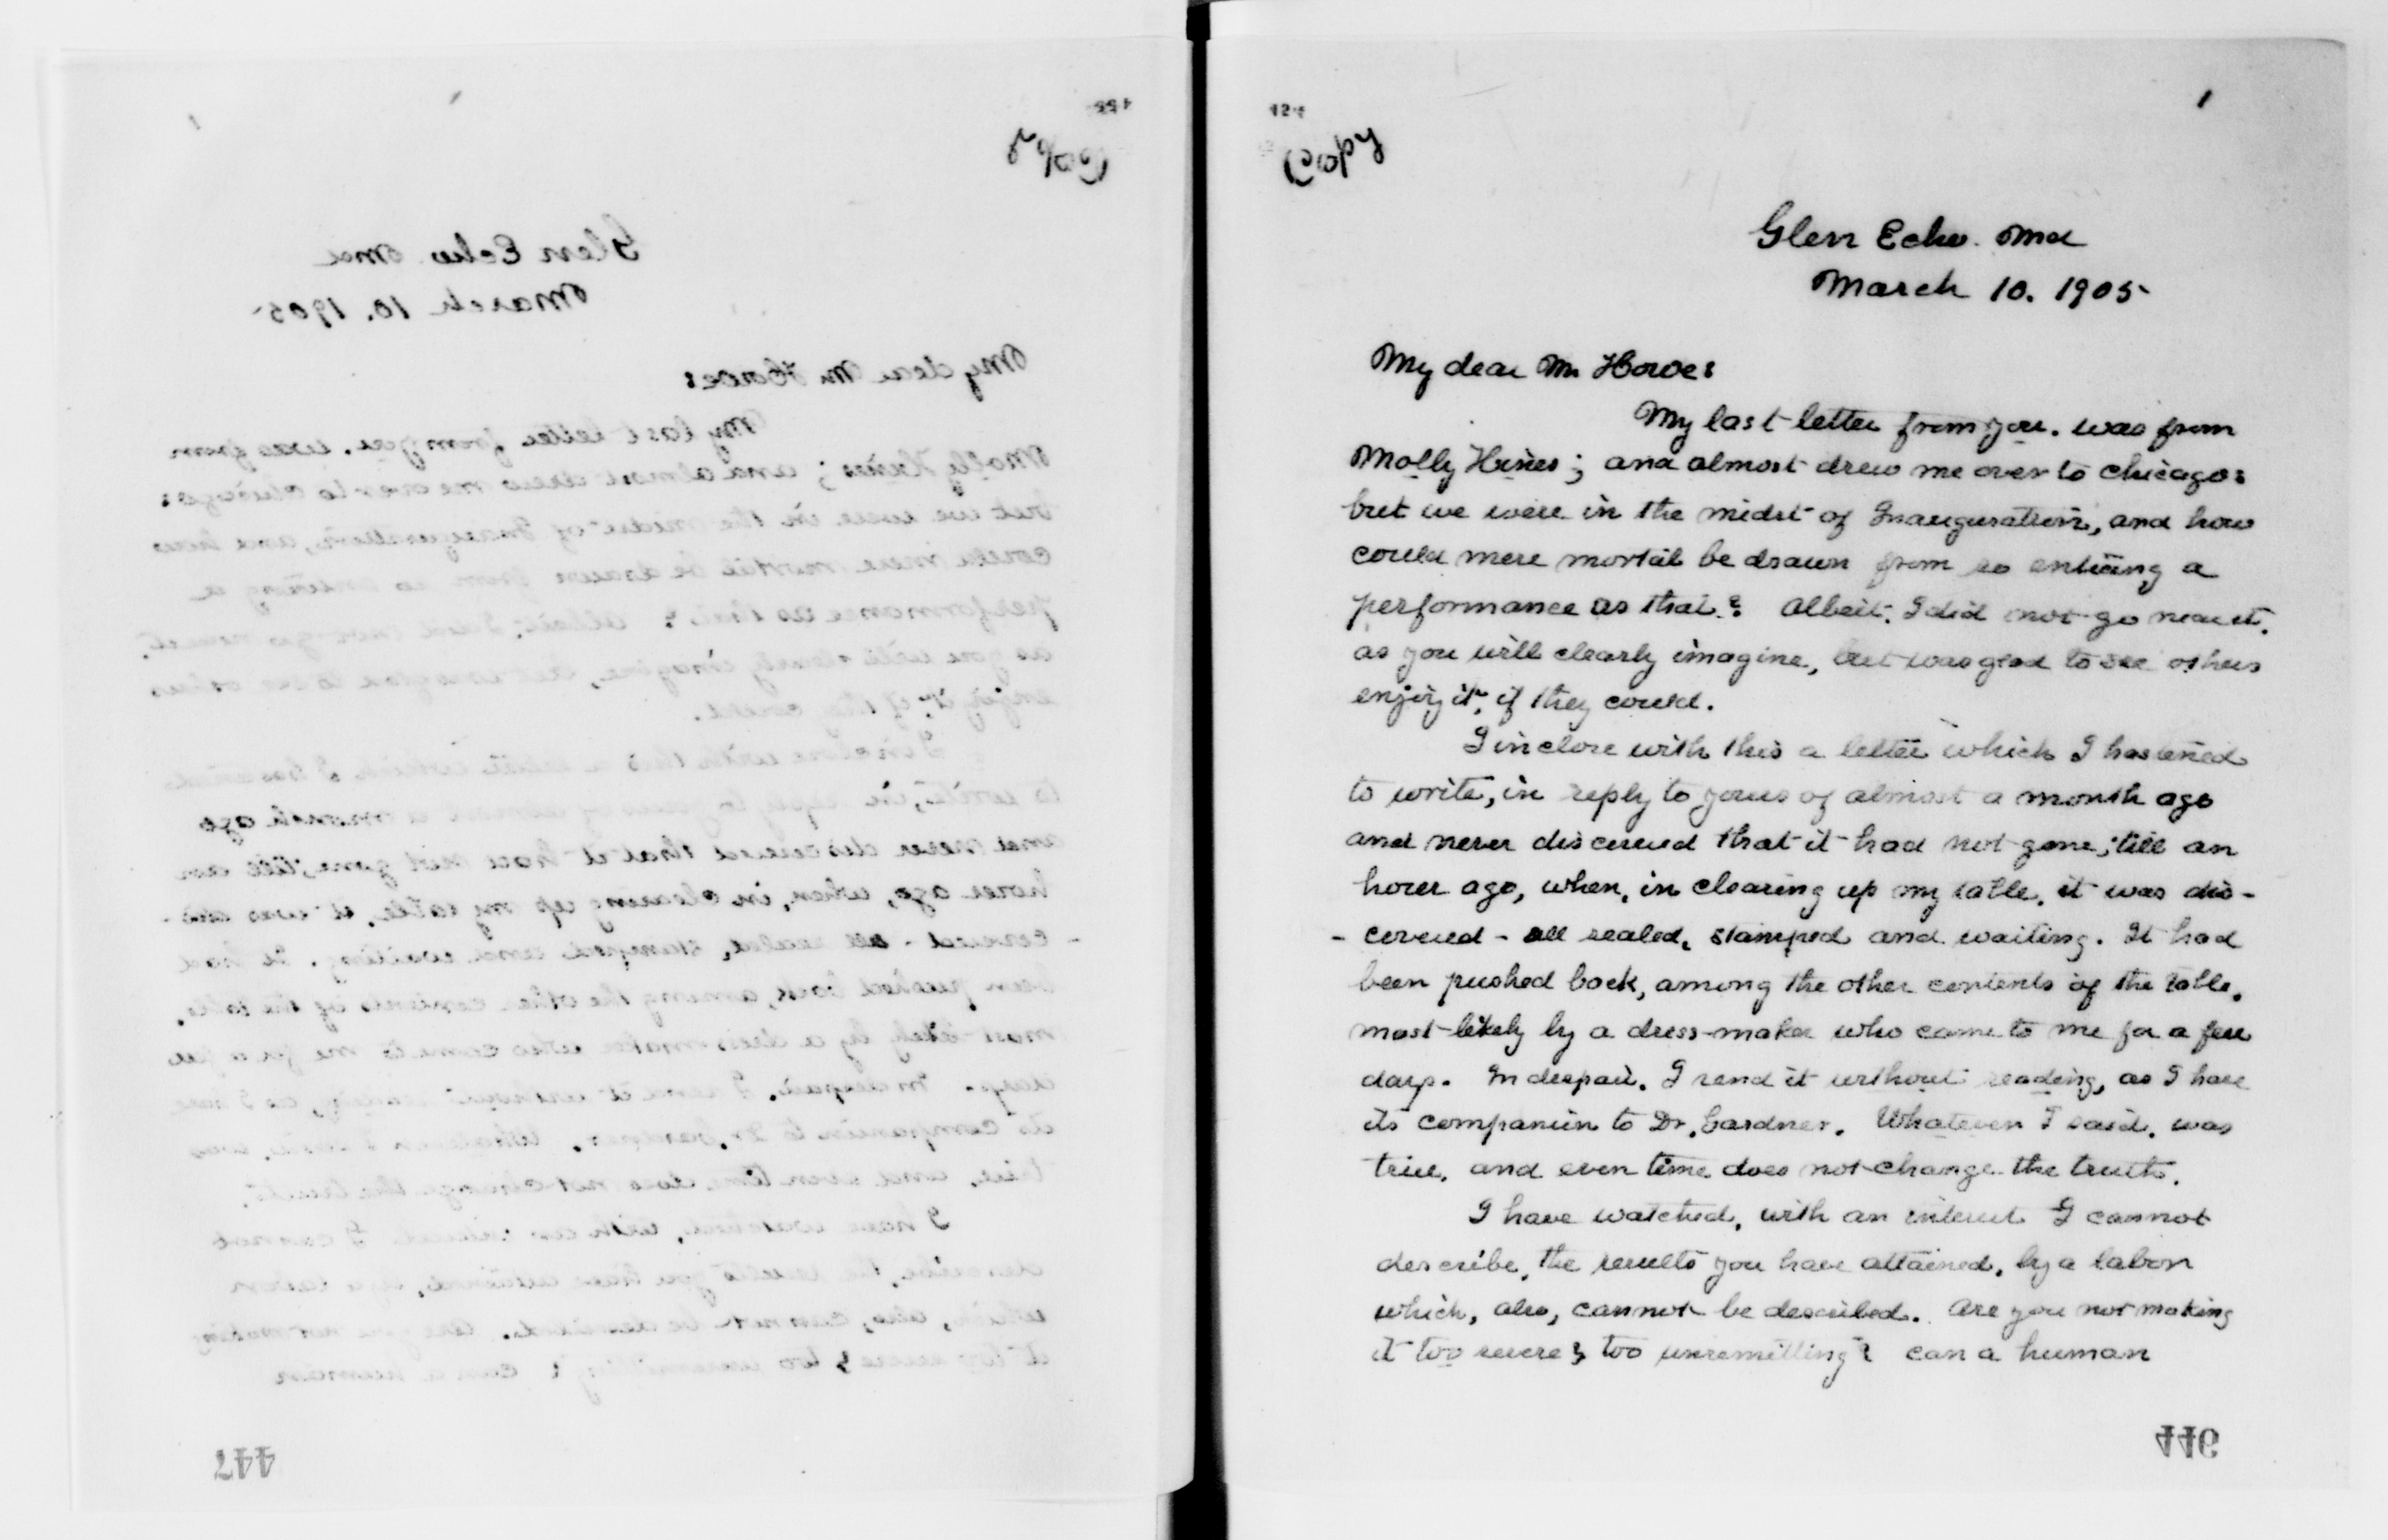 424
1
Copy
Glen Echo. Md
March 10. 1905-
My dear Mr Howe:
My last letter from you. was from
Molly Hines; and almost drew me over to Chicago:
but we were in the midst of Inauguration, and how
could mere mortal be drawn from so enticing a
performance as that? Albeit. I did not go near it.
as you will clearly imagine, but was glad to see others
enjoy it, if they could.
I inclose with this a letter which I hastened
to write, in reply to yours of almost a month ago
and never discerned that it had not gone, till an
hour ago, when, in clearing up my table. it was dis-
- covered - all sealed, stamped and waiting. It had
been pushed back, among the other contents of the table.
most likely by a dress-maker who came to me for a few
days. In despair. I send it without reading, as I have
its companion to Dr. Gardner. Whatever I said. was
true. and even time does not change the truth.
I have watched, with an interest I cannot
describe, the results you have attained, by a labor
which, also, cannot be described. Are you not making
it too severe, too unremitting? can a human
446
447